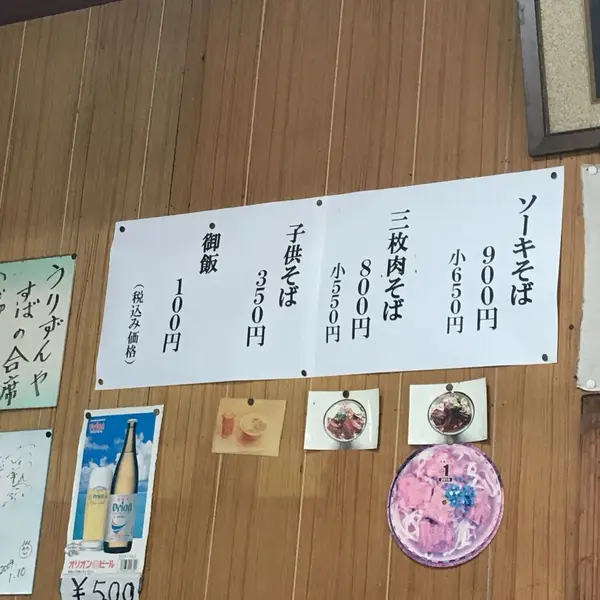 ソーキそば
900円
小650円
三枚肉そば
800円
小550円
子供そば
350円
御飯
100円
(税込み価格)
うりずんや
すばの合席
Orion
Orion
オリオン生ビール
¥500
1
1.10